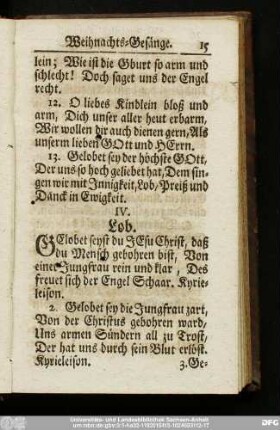 Weihnachts-Gesänge. 15
lein; Wie ist die Gburt so arm und
schlecht! Doch saget uns der Engel
recht.
12. O liebes Kindlein bloß und
arm, Dich unser aller heut erbarm,
Wir wollen dir auch dienen gern, Als
unserm lieben GOtt und HErrn.
13. Gelobet sey der höchste GOtt,
Der uns so hoch geliebet hat, Dem sin-
gen wir mit Innigkeit, Lob, Preiß und
Danck in Ewigkeit.
IV.
Lob.
GElobet seyst du JEsu Christ, daß
du Mensch gebohren bist, Von
einer Jungfrau rein und klar, Des
freuet sich der Engel Schaar. Kyrie-
leison.
2. Gelobet sey die Jungfrau zart,
Von der Christus gebohren ward,
Uns armen Sündern all zu Trost,
Der hat uns durch sein Blut erlöst.
Kyrieleison. 3. Ge-
Universitäts- und Landesbibliothek Sachsen-Anhalt